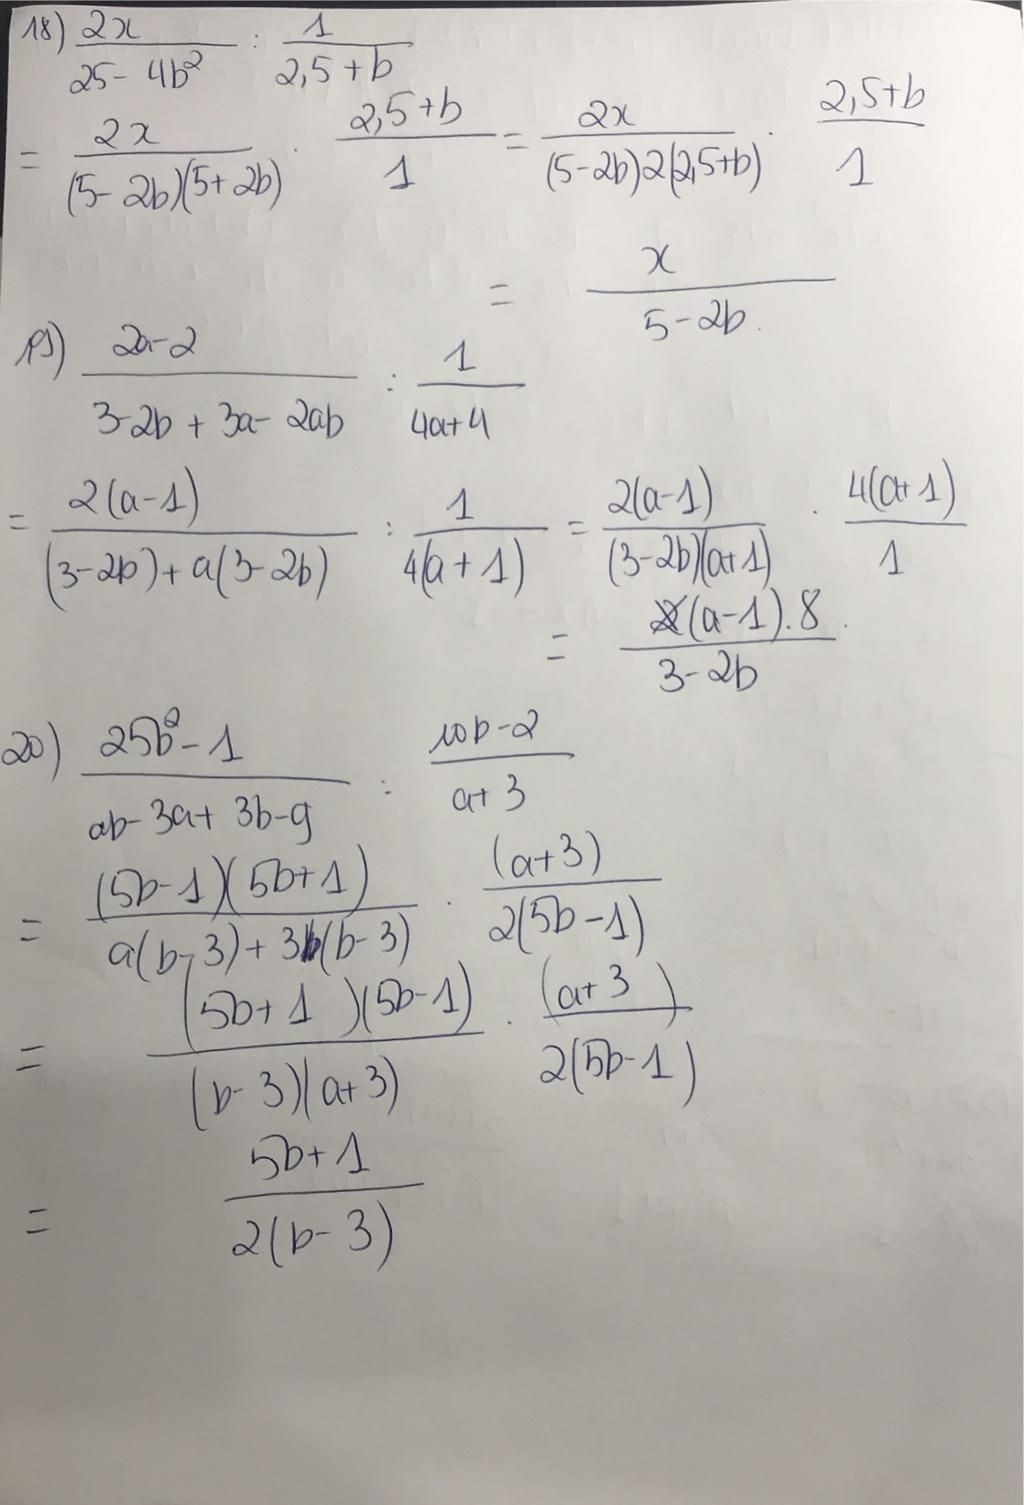 18) 2x / (25 - 4b²) : 1 / (2,5 + b)
= 2x / ((5 - 2b)(5 + 2b)) · (2,5 + b) / 1 = 2x / ((5 - 2b)2(2,5 + b)) · (2,5 + b) / 1
= x / (5 - 2b)
19) (2a - 2) / (3 - 2b + 3a - 2ab) : 1 / (4a + 4)
= 2(a - 1) / ((3 - 2b) + a(3 - 2b)) : 1 / (4(a + 1)) = 2(a - 1) / ((3 - 2b)(a + 1)) · 4(a + 1) / 1
= (a - 1).8 / (3 - 2b)
20) (25b² - 1) / (ab - 3a + 3b - 9) : (10b - 2) / (a + 3)
= (5b - 1)(5b + 1) / (a(b - 3) + 3(b - 3)) · (a + 3) / (2(5b - 1))
= (5b + 1)(5b - 1) / ((b - 3)(a + 3)) · (a + 3) / (2(5b - 1))
= (5b + 1) / (2(b - 3))